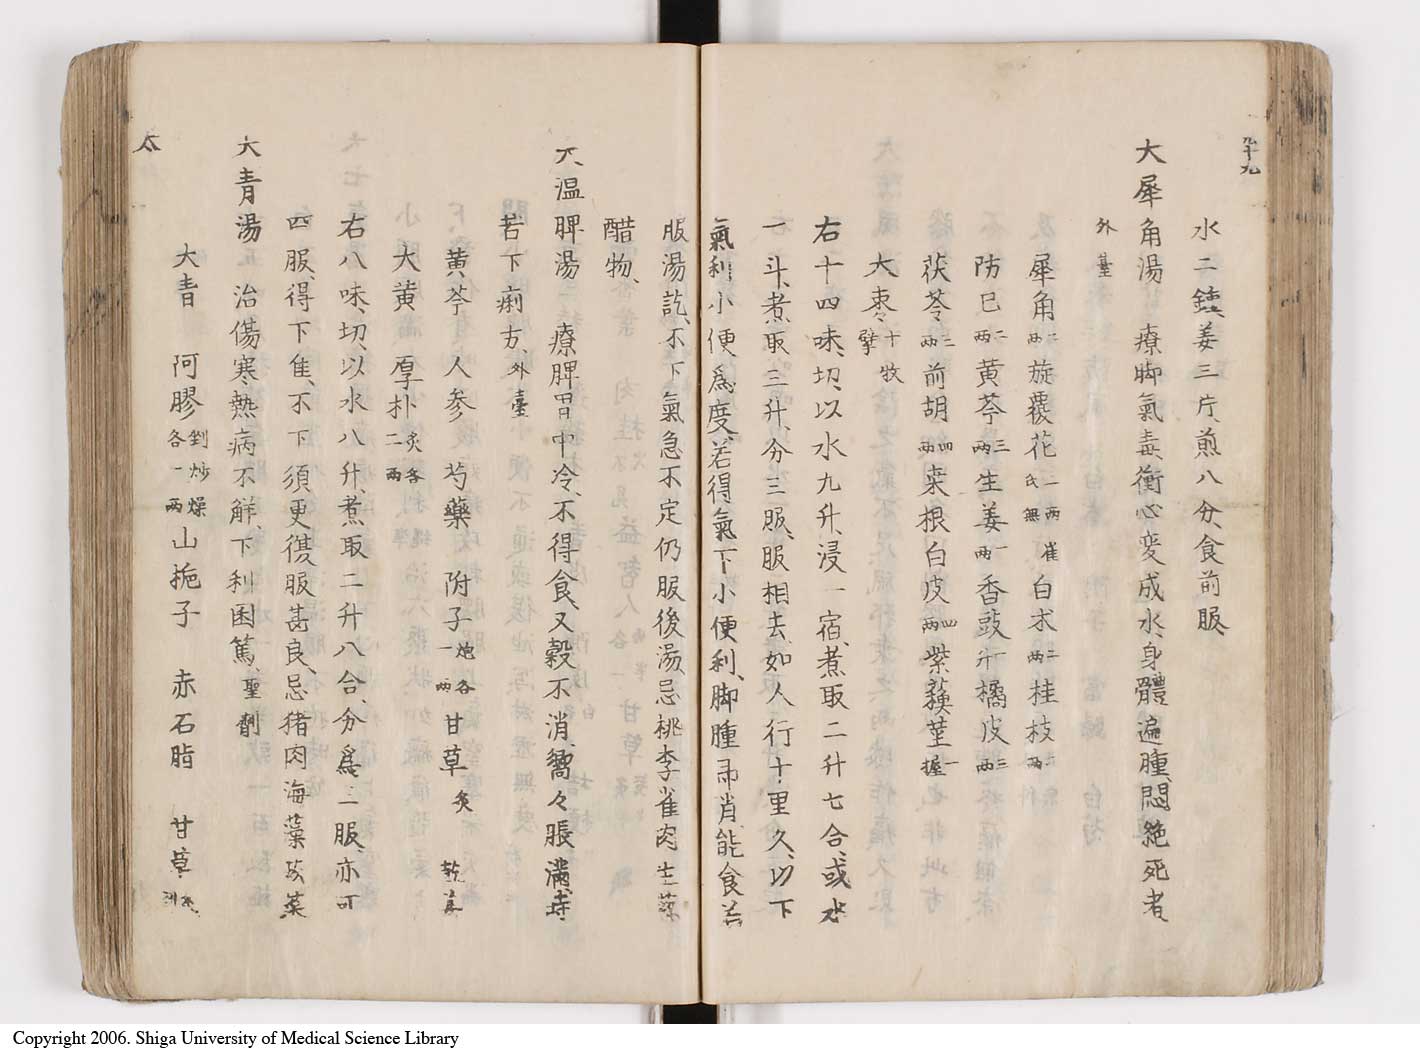 九十九
水二鍾姜三片煎八分、食前服、
大犀角湯 療脚氣毒衝心変成水、身體遍腫、悶絶死者
外臺
犀角二両旋覆花二両 白朮二両桂枝二両
防已二両黄芩三両生姜一両香豉一升橘皮三両
茯苓三両前胡四両桒根白皮四両紫蘓莖一握
大枣十牧擘
右十四味、切、以水九升、浸一宿、煮取二升七合、或水
一斗、煮取三升、分三服、服相去、如人行十里久、以下
氣利小便為度、若得氣下小便利、脚腫即消、能食、若
服湯訖、不下氣急不定仍服後湯、忌桃李雀肉生菜
醋物、
大温脾湯 療脾胃中冷、不得食、又穀不消、嚮々脹満、時
苦下痢方外臺
黄芩 人参 芍藥 附子一両炮各 甘草炙 乾姜
大黄 厚朴炙各二両
右八味、切、以水八升、煮取二升八合、分為三服、亦可
四服、得下佳、不下須更復服甚良、忌猪肉海藻菘菜
大青湯 治傷寒熱病不解、下利困篤、聖劑
大青 阿膠剉炒燥各一両山梔子 赤石脂 甘草
太